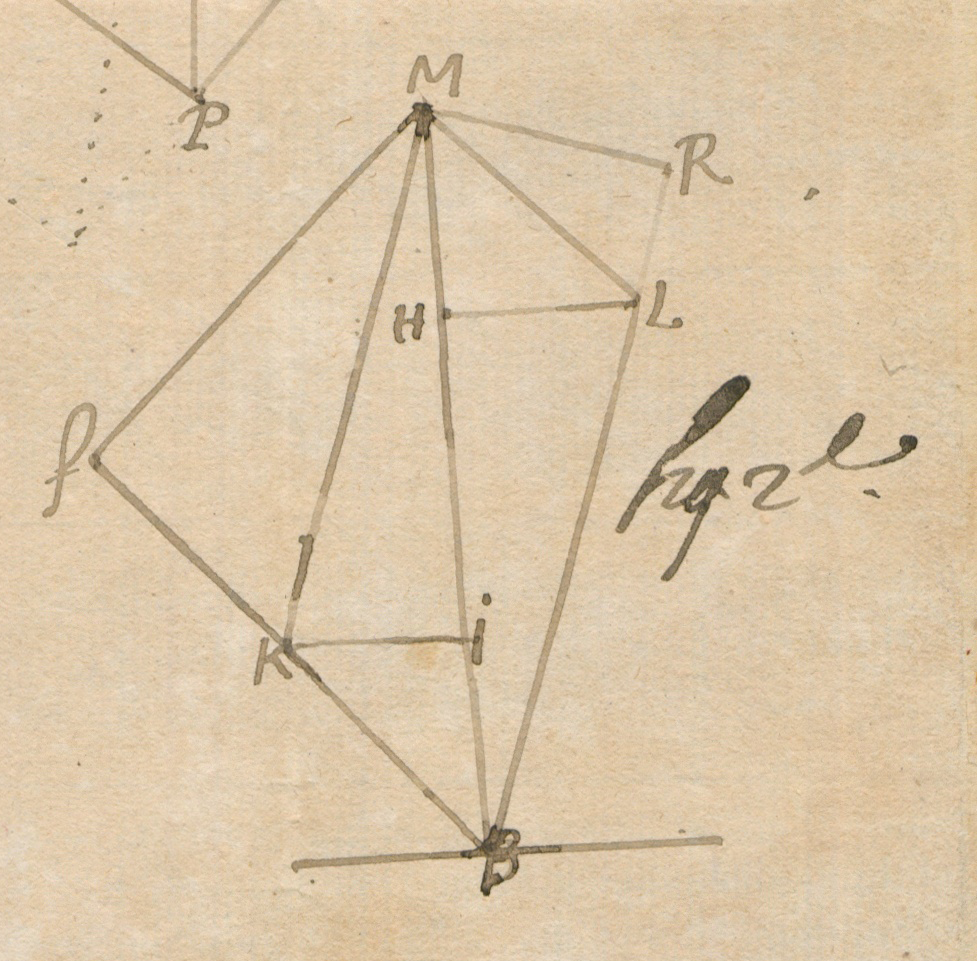 M
P
R
H
L
f
fig 2e.
K
i
B